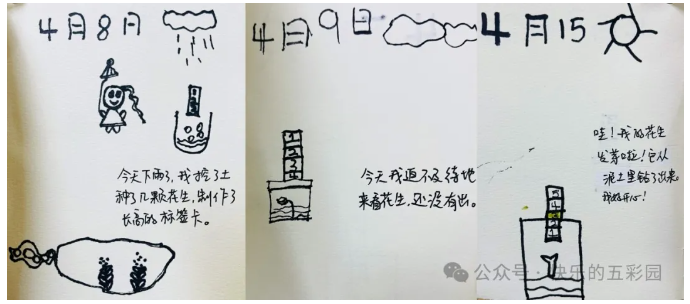 4月8日
今天下雨了,我捡了土
种了几颗花生,制作了
长高的标签卡。
4月9日
今天我迫不及待地
来看花生,还没有出。
4月15
哇!我的花生
发芽啦!它从
泥土里钻了出来。
我好开心!
公众号·快乐的五彩园